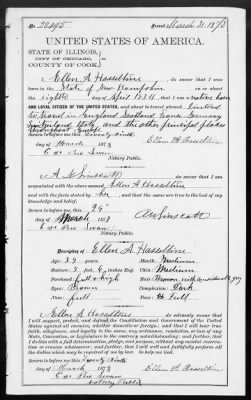 No. 28295 Issued March 31, 1873
UNITED STATES OF AMERICA.
STATE OF ILLINOIS,
CITY OF CHICAGO,
COUNTY OF COOK.
I, Ellen A Hasseltine do swear that I was
born in the State of New Hampshire on or about the
eighth day of April 1836, that I am a native born
AND LOYAL CITIZEN OF THE UNITED STATES, and about to travel abroad. Intend
to travel in England Scotland France Germany
Switzerland Italy and the other principal places
throughout Europe
Sworn to before me this Twenty Ninth
day of March 1873
Ellen A Hasseltine
Notary Public.
I, A N Linscott do swear that I am
acquainted with the above named Ellen A Hasseltine and
with the facts stated by her and that the same are true to the
Sworn to before me this 29th
day of March 1873
A N Linscott
Notary Public.
Description of Ellen A Hasseltine
Age: 37 years. Mouth: Medium
Stature: 5 feet, inches Eng. Chin: Medium
Forehead: full & high Hair: Brown
Eyes: Brown Complexion: Dark
Nose: full Face: Full
I, Ellen A Hasseltine do solemnly swear that I
will support, protect, and defend the Constitution and Government of the United
States against all enemies, whether domestic or foreign; and that I will bear true
faith, allegiance, and loyalty to the same, any ordinance, resolution, or law of any
State, Convention, or Legislature to the contrary notwithstanding; and further, that
I do this with a full determination, pledge, and purpose, without any mental reserva-
tion or evasion whatsoever; and further, that I will well and faithfully perform all
the duties which may be required of me by law. So help me God.
Sworn to before me this Twenty Ninth
day of March 1873
Ellen A Hasseltine
Notary Public